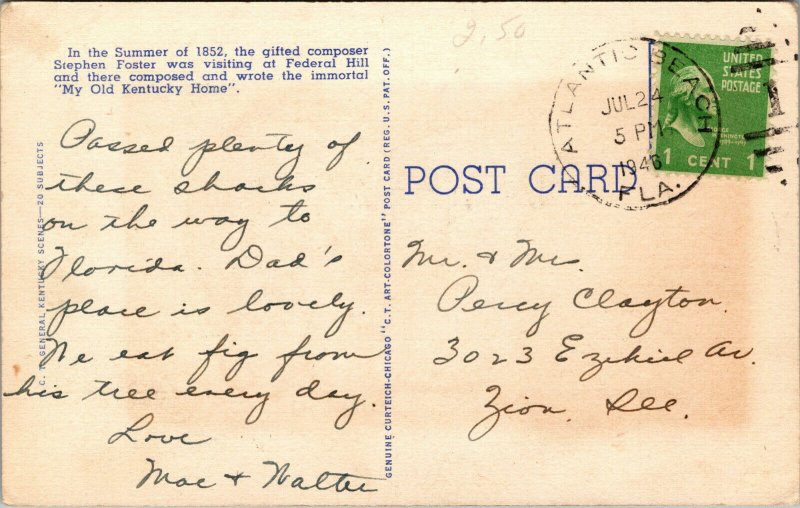 In the Summer of 1852, the gifted composer
Stephen Foster was visiting at Federal Hill
and there composed and wrote the immortal
"My Old Kentucky Home".
Passed plenty of
these shacks
on the way to
Florida. Dad's
place is lovely.
We eat fig from
his tree every day.
Love
Mae + Walter
C. T. GENERAL KENTUCKY SCENES—20 SUBJECTS
GENUINE CURTEICH-CHICAGO "C.T. ART-COLORTONE" POST CARD (REG. U.S. PAT. OFF.)
2.50
POST CARD
ATLANTIC BEACH
JUL 24
5 PM
1946
FLA.
UNITED
STATES
POSTAGE
GEORGE
WASHINGTON
1 CENT 1
Mr. & Mrs.
Percy Clayton.
3023 Ezekiel Av.
Zion, Ill.